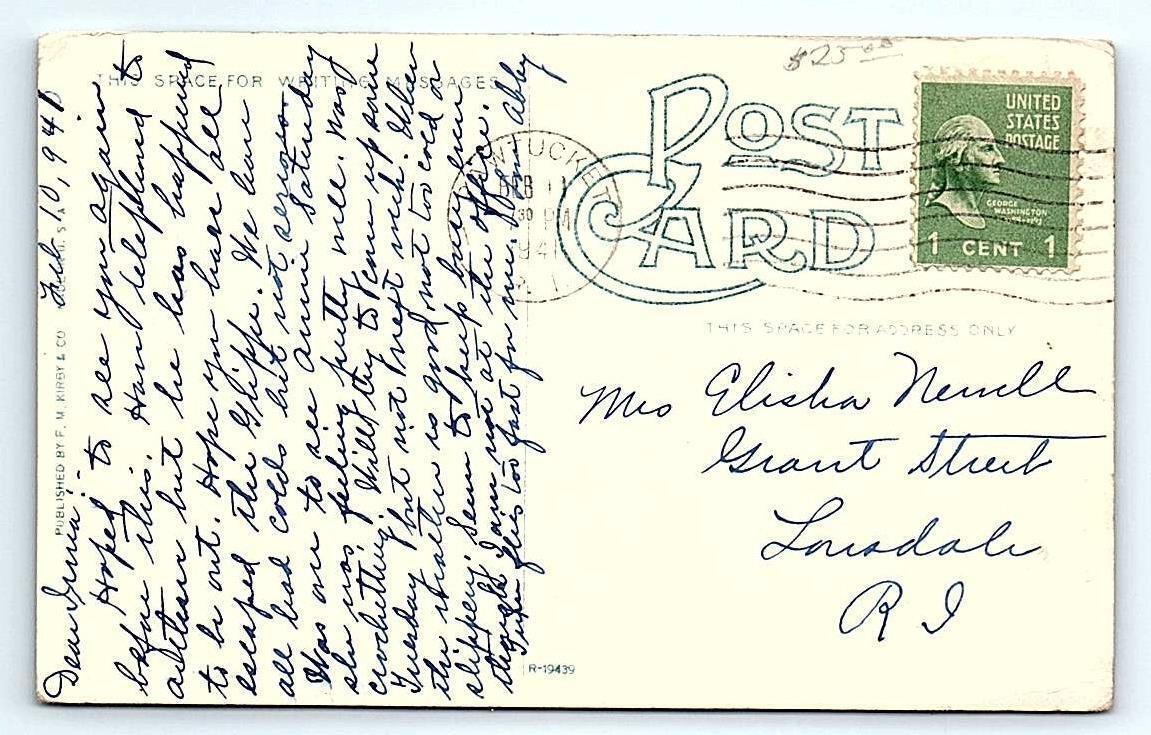 THIS SPACE FOR WRITING MESSAGES
Feb 10, 1941
Dear Irma:-
Hoped to see you again
before this. Have telephoned to
but he has happened
to be out. Hope you have all
escaped the Grippe. We have
all had colds but not serious.
Was over to see Annie Saturday
she was feeling pretty well. Was
crocheting. Will try to come up some
Tuesday but not next week. When
the weather is good, not too cold or
slippery. Seem to keep busy even
though I am not at the office.
Time flies too fast for me. Abby
PUBLISHED BY F. M. KIRBY & CO
R-19439
$25.00
POST CARD
PAWTUCKET
FEB 11
30 PM
1941
R. I.
UNITED
STATES
POSTAGE
GEORGE
WASHINGTON
1 CENT 1
THIS SPACE FOR ADDRESS ONLY
Mrs Elisha Newell
Grant Street
Lonsdale
R I